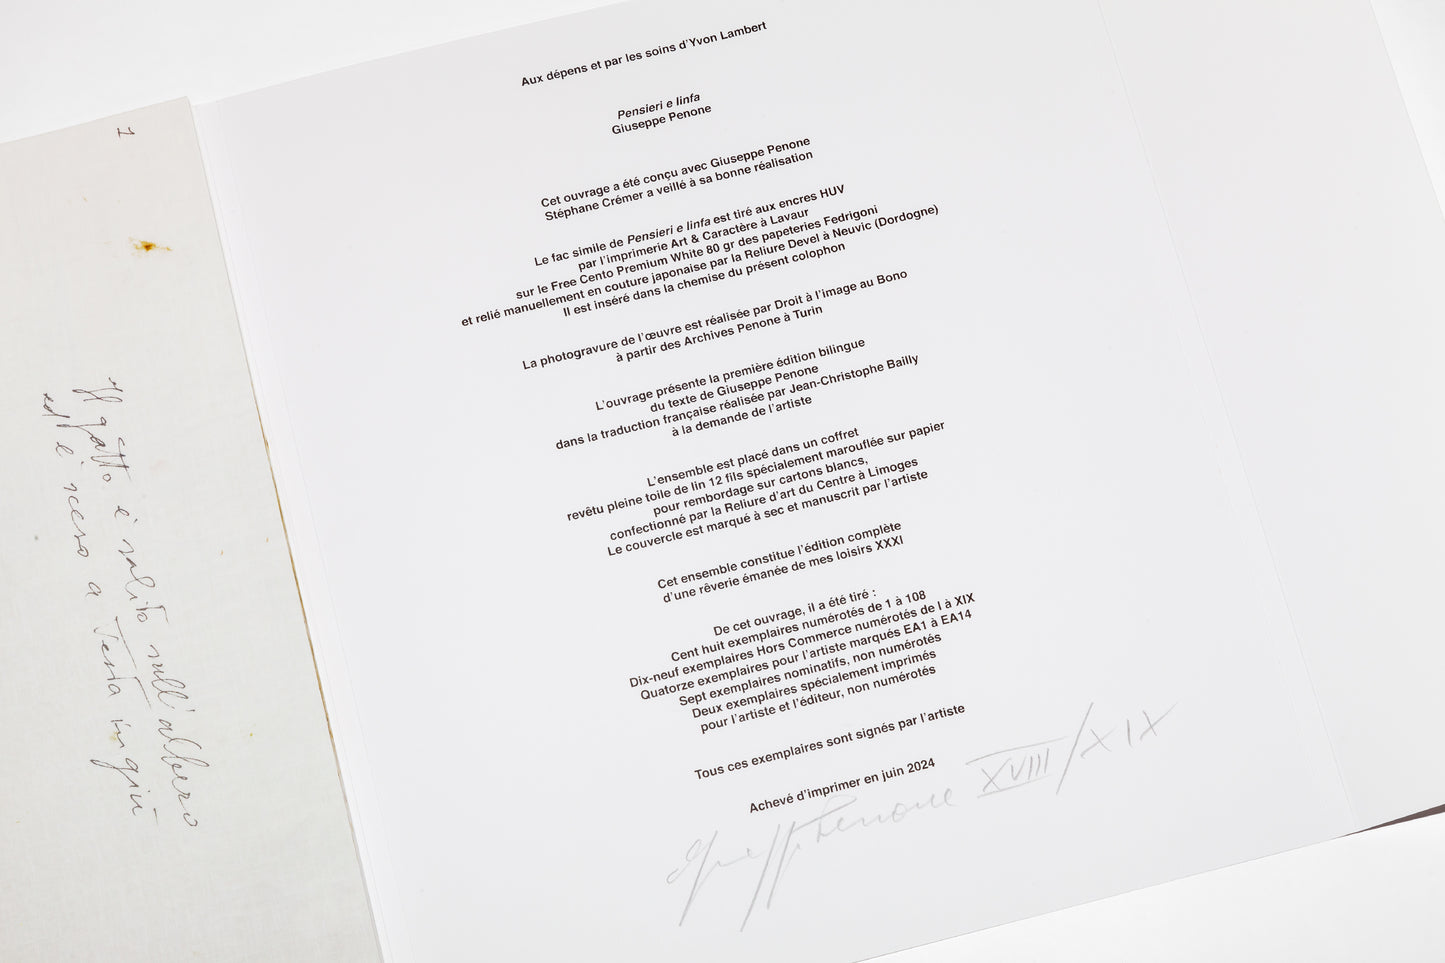 1
Il gatto è salito sull'albero
ed è sceso a testa in giù
Aux dépens et par les soins d'Yvon Lambert
Pensieri e linfa
Giuseppe Penone
Cet ouvrage a été conçu avec Giuseppe Penone
Stéphane Crémer a veillé à sa bonne réalisation
Le fac simile de Pensieri e linfa est tiré aux encres HUV
par l'imprimerie Art & Caractère à Lavaur
sur le Free Cento Premium White 80 gr des papeteries Fedrigoni
et relié manuellement en couture japonaise par la Reliure Devel à Neuvic (Dordogne)
Il est inséré dans la chemise du présent colophon
La photogravure de l'œuvre est réalisée par Droit à l'image au Bono
à partir des Archives Penone à Turin
L'ouvrage présente la première édition bilingue
du texte de Giuseppe Penone
dans la traduction française réalisée par Jean-Christophe Bailly
à la demande de l'artiste
L'ensemble est placé dans un coffret
revêtu pleine toile de lin 12 fils spécialement marouflée sur papier
pour rembordage sur cartons blancs,
confectionné par la Reliure d'art du Centre à Limoges
Le couvercle est marqué à sec et manuscrit par l'artiste
Cet ensemble constitue l'édition complète
d'une rêverie émanée de mes loisirs XXXI
De cet ouvrage, il a été tiré :
Cent huit exemplaires numérotés de 1 à 108
Dix-neuf exemplaires Hors Commerce numérotés de I à XIX
Quatorze exemplaires pour l'artiste marqués EA1 à EA14
Sept exemplaires nominatifs, non numérotés
Deux exemplaires spécialement imprimés
pour l'artiste et l'éditeur, non numérotés
Tous ces exemplaires sont signés par l'artiste
Achevé d'imprimer en juin 2024
Giuseppe Penone XVIII/XIX